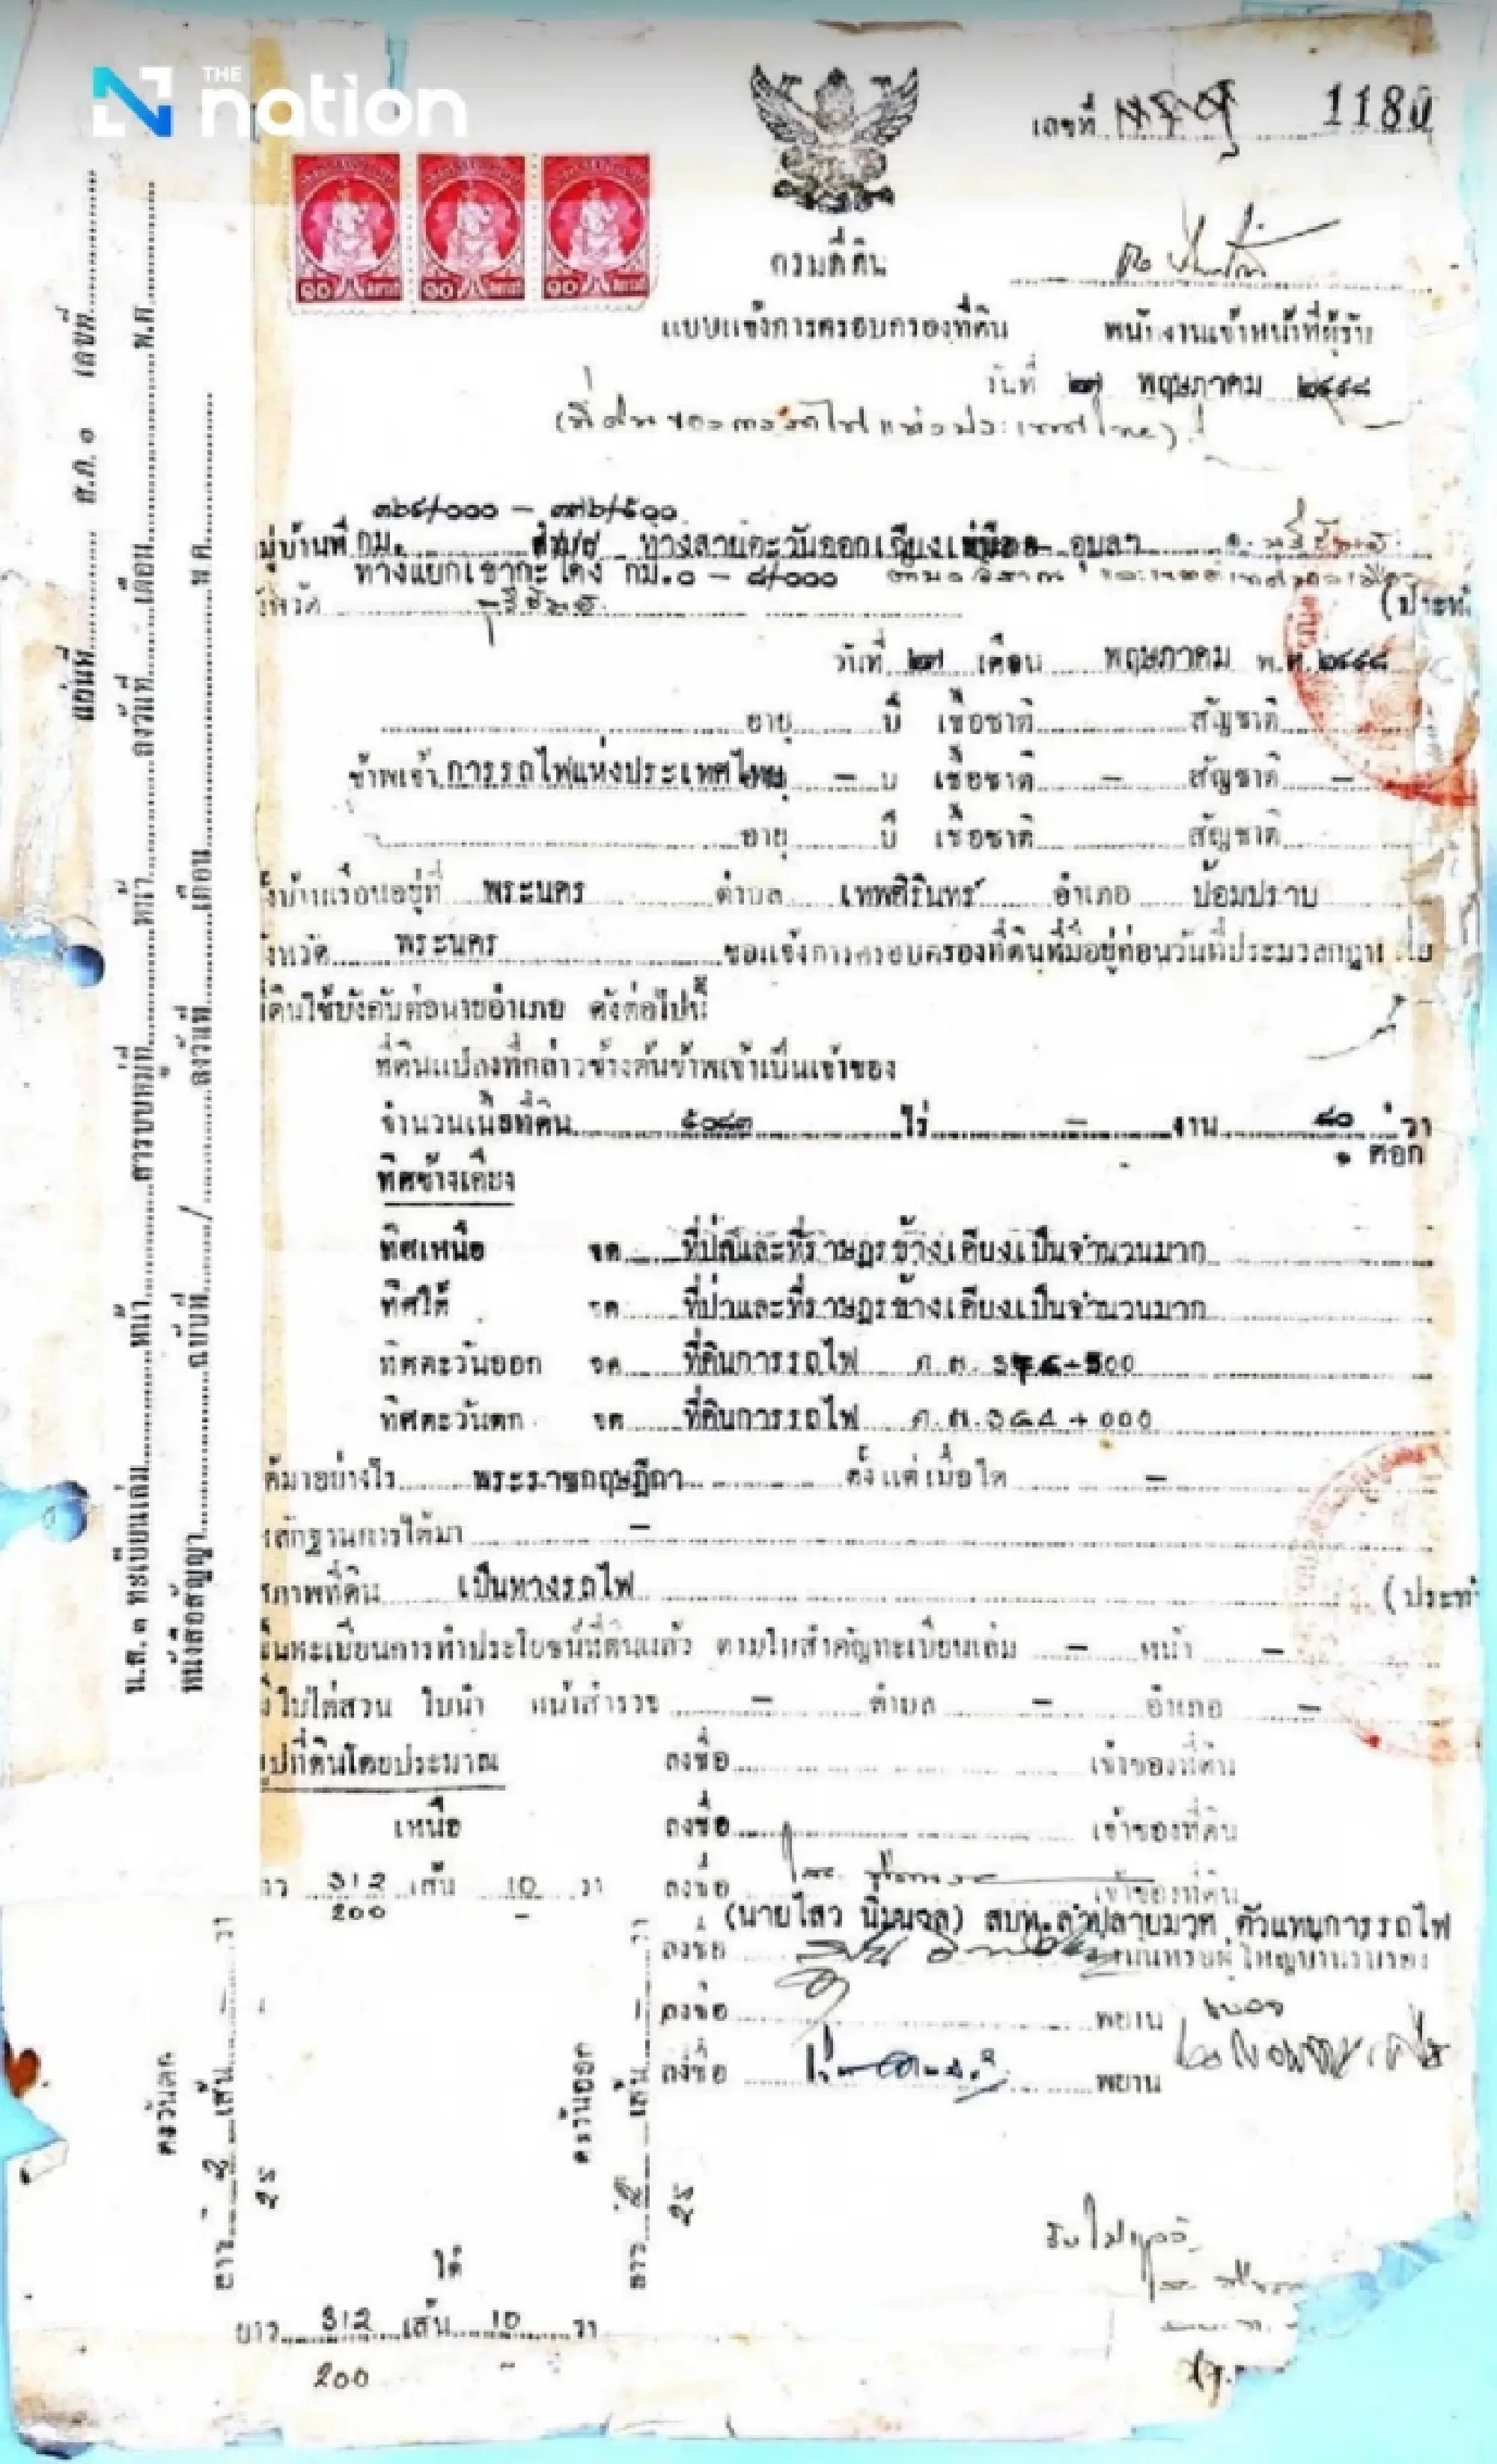 THE
nation
เลขที่ 1180
๑๐ ๑๐ ๑๐
กรมที่ดิน
แบบแจ้งการครอบครองที่ดิน พนักงานเจ้าหน้าที่ผู้รับ
วันที่ ๒๗ พฤษภาคม ๒๔๙๘
(ที่ดินของการรถไฟแห่งประเทศไทย)
๓๖๔/๐๐๐ – ๓๗๖/๕๐๐
มู่บ้านที่ กม. ทางสายตะวันออกเฉียงเหนือ อุบลฯ
ทางแยกเขากะโดง กม.๐ – ๘/๐๐๐
ังหวัด บุรีรัมย์
(ประทั
วันที่ ๒๗ เดือน พฤษภาคม พ.ศ.๒๔๙๘
อายุ ปี เชื้อชาติ สัญชาติ
ข้าพเจ้า การรถไฟแห่งประเทศไทย อายุ – ปี เชื้อชาติ – สัญชาติ –
อายุ ปี เชื้อชาติ สัญชาติ
ั้งบ้านเรือนอยู่ที่ พระนคร ตำบล เทพศิรินทร์ อำเภอ ป้อมปราบ
ังหวัด พระนคร ขอแจ้งการครอบครองที่ดินที่มีอยู่ก่อนวันที่ประมวลกฎห
ี่ดินใช้บังคับต่อนายอำเภอ ดังต่อไปนี้
ที่ดินแปลงที่กล่าวข้างต้นข้าพเจ้าเป็นเจ้าของ
จำนวนเนื้อที่ดิน ๕๐๘๓ ไร่ – งาน ๘๐ วา
๑ ศอก
ทิศข้างเคียง
ทิศเหนือ จด ที่ป่าและที่ราษฎรข้างเคียงเป็นจำนวนมาก
ทิศใต้ จด ที่ป่าและที่ราษฎรข้างเคียงเป็นจำนวนมาก
ทิศตะวันออก จด ที่ดินการรถไฟ ก.ม. +500
ทิศตะวันตก จด ที่ดินการรถไฟ ก.ม.364+000
ด้มาอย่างไร พระราชกฤษฎีกา ตั้งแต่เมื่อใด –
ลักฐานการได้มา –
ภาพที่ดิน เป็นทางรถไฟ
(ประทั
ึ้นทะเบียนการทำประโยชน์ที่ดินแล้ว ตามใบสำคัญทะเบียนเล่ม – หน้า –
ี ใบไต่สวน ใบนำ หน้าสำรวจ – ตำบล – อำเภอ –
ูปที่ดินโดยประมาณ ลงชื่อ เจ้าของที่ดิน
เหนือ ลงชื่อ เจ้าของที่ดิน
าว 312 เส้น 10 วา ลงชื่อ เจ้าของที่ดิน
200 –
(นายไสว นิมมจล) สบท.ลำปลายมาศ ตัวแทนการรถไฟ
ลงชื่อ
ลงชื่อ พยาน
ลงชื่อ พยาน
ตะวันตก
ยาว เส้น วา
25
ตะวันออก
ยาว เส้น วา
25
ใต้
ยาว 312 เส้น 10 วา
200 –
รับไปแล้ว
แผ่นที่ ส.ค. ๑ เลขที่
น.ส. ๓ ทะเบียนเล่ม หน้า สารบบหมู่ที่ หน้า ลงวันที่ เดือน พ.ศ.
หนังสือสัญญา ฉบับที่ / ลงวันที่ เดือน พ.ศ.